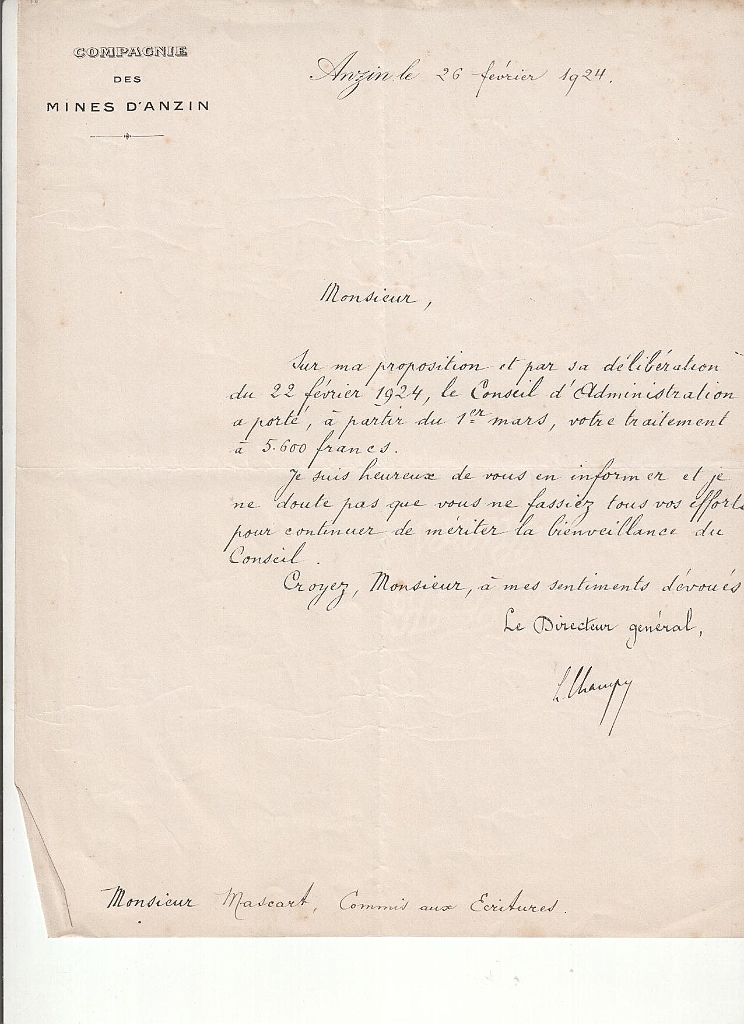 COMPAGNIE
DES
MINES D'ANZIN
Anzin le 26 février 1924.
Monsieur,
Sur ma proposition et par sa délibération
du 22 février 1924, le Conseil d'Administration
a porté, à partir du 1er mars, votre traitement
à 5.600 francs.
Je suis heureux de vous en informer et je
ne doute pas que vous ne fassiez tous vos efforts
pour continuer de mériter la bienveillance du
Conseil.
Croyez, Monsieur, à mes sentiments dévoués
Le Directeur général,
L Champy
Monsieur Mascart, Commis aux Ecritures.